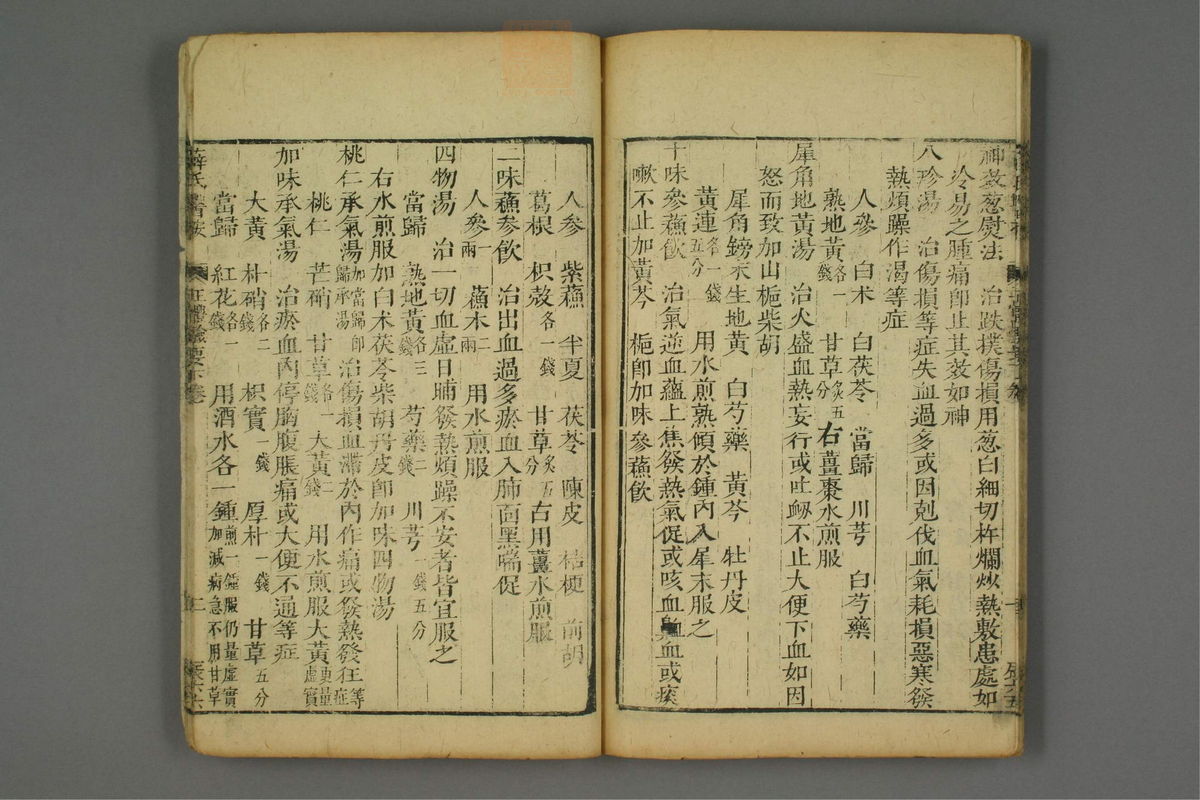 神效葱熨法　治跌撲傷損用葱白細切杵爛炒熱敷患處如
冷易之腫痛卽止其效如神
八珍湯　治傷損等症失血過多或因剋伐血氣耗損惡寒發
熱煩躁作渴等症
人參　白朮　白茯苓　當歸　川芎　白芍藥
熟地黃各一錢　甘草炙五分　右薑棗水煎服
犀角地黃湯　治火盛血熱妄行或吐衂不止大便下血如因
怒而致加山梔柴胡
犀角鎊末　生地黃　白芍藥　黃芩　牡丹皮
黃連各一錢五分　用水煎熟傾於鍾內入犀末服之
十味參蘓飮　治氣逆血蘊上焦發熱氣促或咳血衂血或痰
嗽不止加黃芩　梔卽加味參蘓飮
人參　紫蘓　半夏　茯苓　陳皮　桔梗　前胡
葛根　枳殼各一錢　甘草炙五分　右用薑水煎服
二味蘓參飮　治出血過多瘀血入肺面黑喘促
人參一兩　蘓木二兩　用水煎服
四物湯　治一切血虛日晡發熱煩躁不安者皆宜服之
當歸　熟地黃各三錢　芍藥二錢　川芎一錢五分
右水煎服加白朮茯苓柴胡丹皮卽加味四物湯
桃仁承氣湯加當歸卽歸承湯　治傷損血滯於內作痛或發熱發狂等症
桃仁　芒硝　甘草各一錢　大黃二錢　用水煎服大黃更量虛實
加味承氣湯　治瘀血內停胸腹脹痛或大便不通等症
大黃　朴硝各二錢　枳實一錢　厚朴一錢　甘草五分
當歸　紅花各一錢　用酒水各一鍾煎一鍾服仍量虛實加減病急不用甘草
薛氏醫按　正體類要下卷